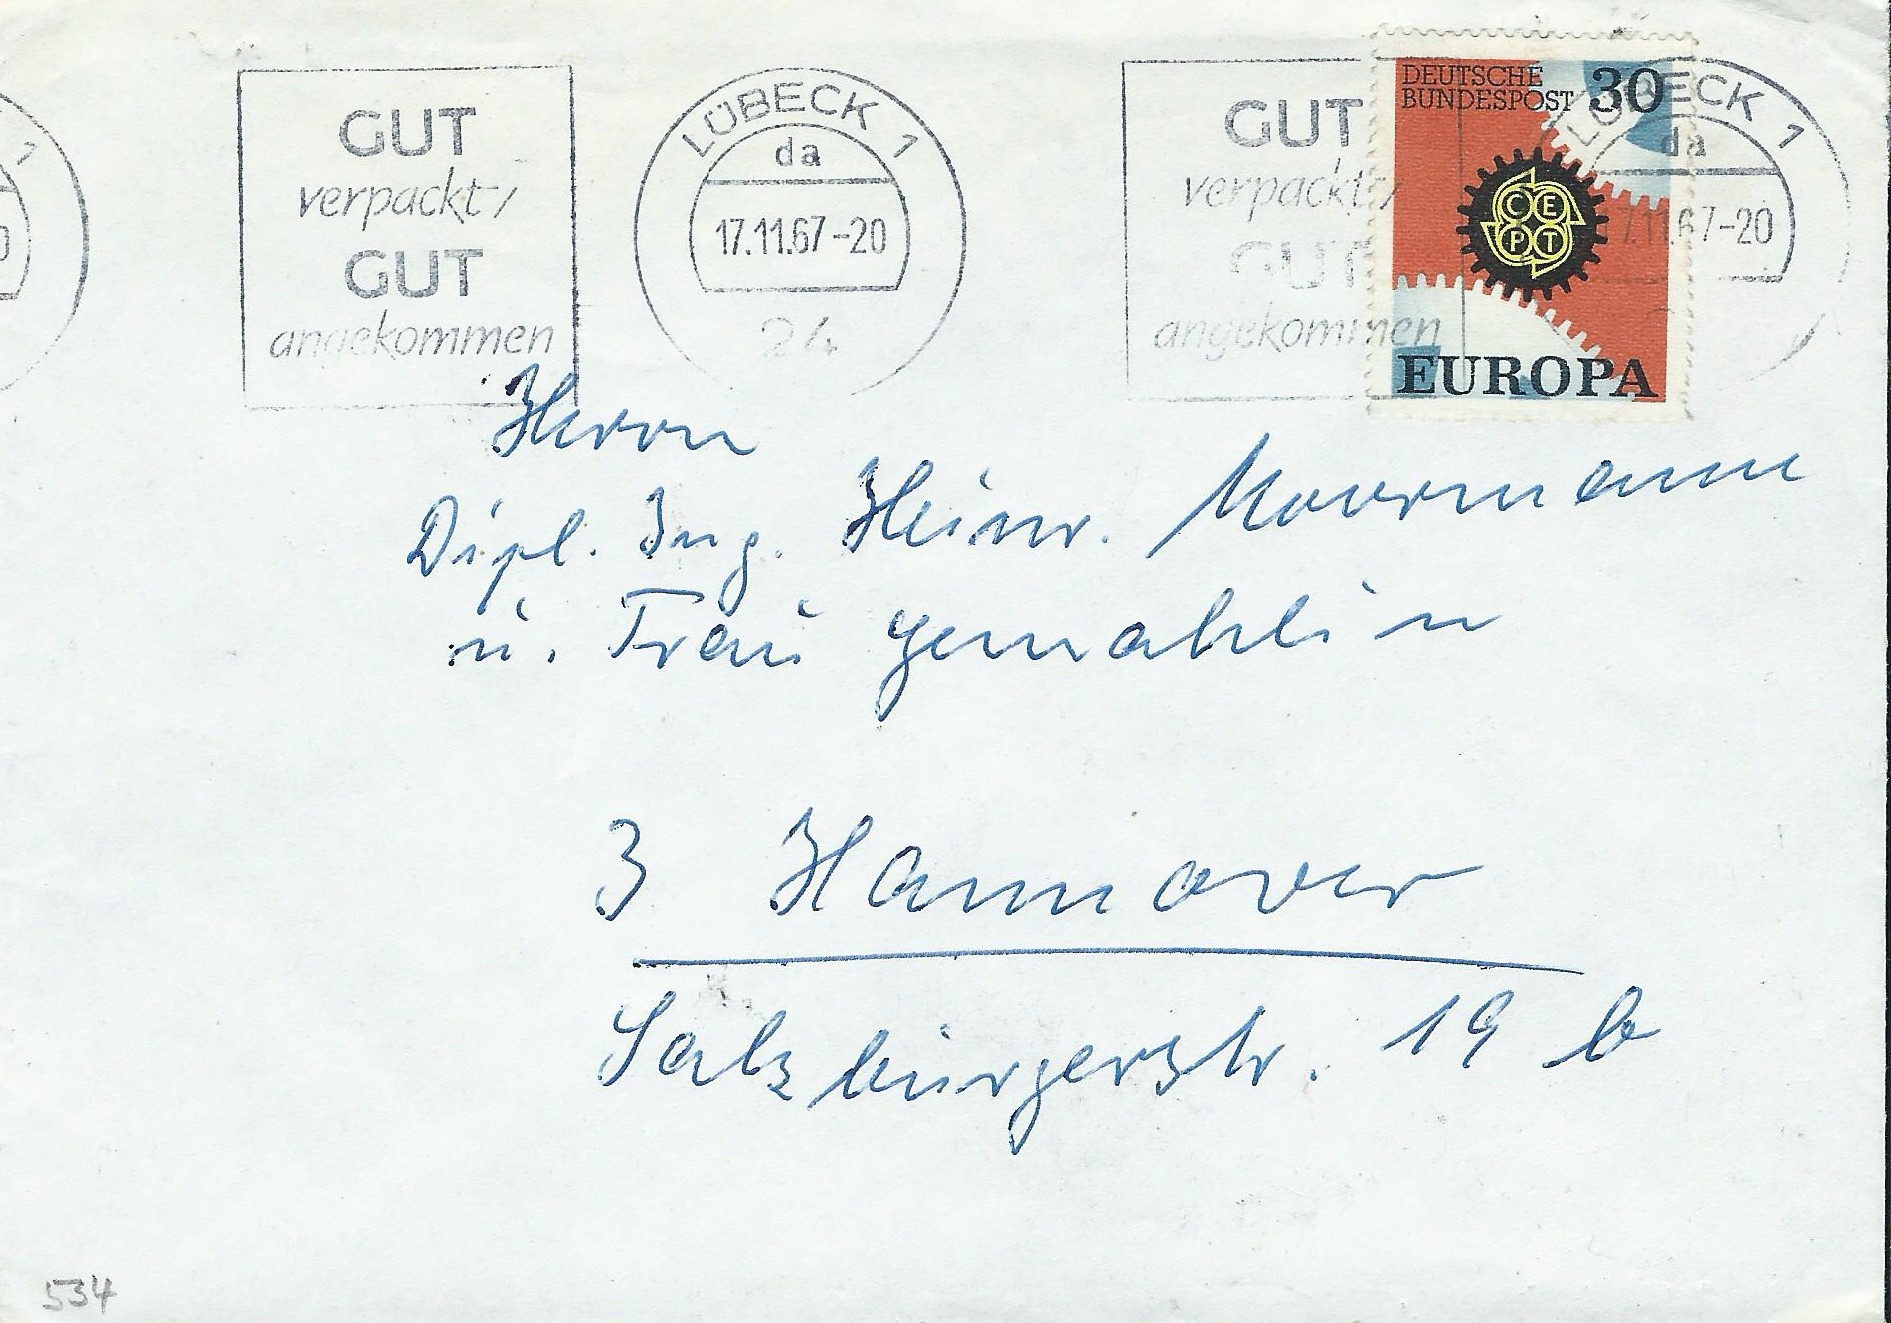 GUT
verpackt/
GUT
angekommen
LÜBECK 1
da
17.11.67-20
24
GUT
verpackt/
GUT
angekommen
DEUTSCHE
BUNDESPOST 30
CEPT
EUROPA
LÜBECK 1
da
7.11.67-20
Herrn
Dipl. Ing. Heinr. Moormann
u. Frau gemahlin
3 Hannover
Salzburgerstr. 19 b
534